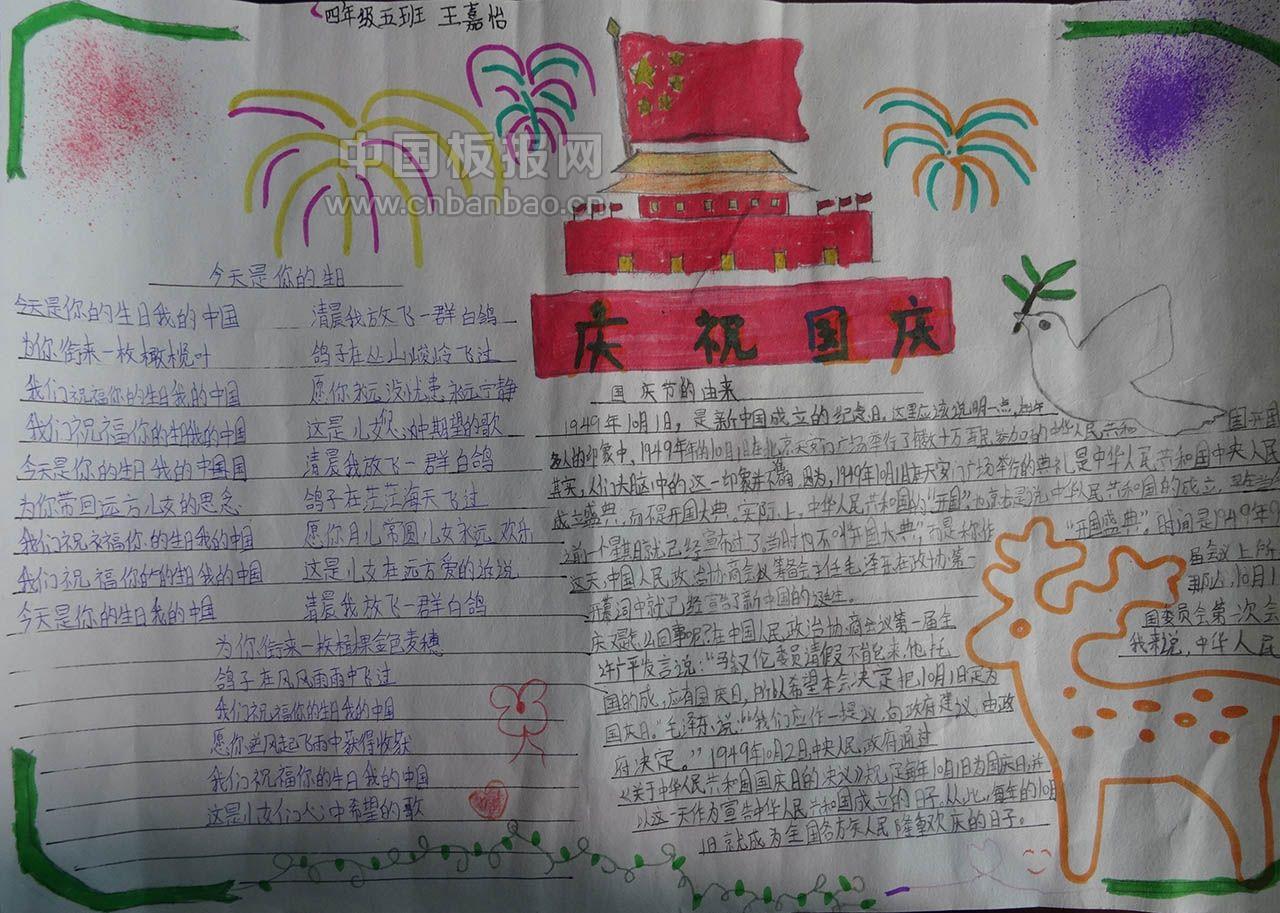 四年级五班 王嘉怡
中国板报网
www.cnbanbao.cn
庆祝国庆
今天是你的生日
今天是你的生日我的中国 清晨我放飞一群白鸽
为你衔来一枚橄榄叶 鸽子在丛山峻岭飞过
我们祝福你的生日我的中国 愿你永远没忧患永远宁静
我们祝福你的生日我的中国 这是儿女们心中期望的歌
今天是你的生日我的中国国 清晨我放飞一群白鸽
为你带回远方儿女的思念 鸽子在茫茫海天飞过
我们祝福你的生日我的中国 愿你月儿常圆儿女永远欢乐
我们祝福你的生日我的中国 这是儿女在远方爱的诉说
今天是你的生日我的中国 清晨我放飞一群白鸽
为你衔来一枚植果金色麦穗
鸽子在风风雨雨中飞过
我们祝福你的生日我的中国
愿你逆风起飞雨中获得收获
我们祝福你的生日我的中国
这是儿女们心中希望的歌
国庆节的由来
1949年10月1日，是新中国成立的纪念日。这里应该说明一点，在许
多人的印象中，1949年的10月1日在北京天安门广场举行了有数十万军民参加的中华人民共和国开国
其实，人们大脑中的这一印象并不准确。因为，1949年10月1日在天安门广场举行的典礼是中华人民共和国中央人民
成立盛典，而不是开国大典。实际上，中华人民共和国的“开国”，也就是说中华人民共和国的成立，早在当年
之前一个星期就已经宣布过了。当时也不叫“开国大典”，而是称作“开国盛典”。时间是1949年9
这天，中国人民政治协商会议筹备会主任毛泽东在政协第一届会议上所
开幕词中就已经宣告了新中国的诞生。那么，10月1
庆又是怎么回事呢？在中国人民政治协商会议第一届全国委员会第一次会
许广平发言说：“马叙伦委员请假不能来，他托我来说，中华人民
国的成，应有国庆日，所以希望本会决定把10月1日定为
国庆日。”毛泽东说：“我们应作一提议，向政府建议，由政
府决定。”1949年10月2日，中央人民政府通过
《关于中华人民共和国国庆日的决议》规定每年10月1日为国庆日，并
以这一天作为宣告中华人民共和国成立的日子。从此，每年的10月
1日就成为全国各族人民隆重欢庆的日子。